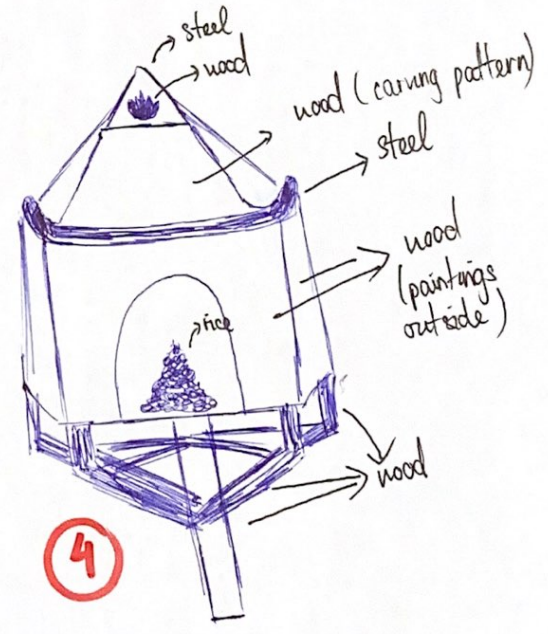 steel
wood
wood (carving pattern)
steel
wood
(paintings
outside)
rice
wood
4